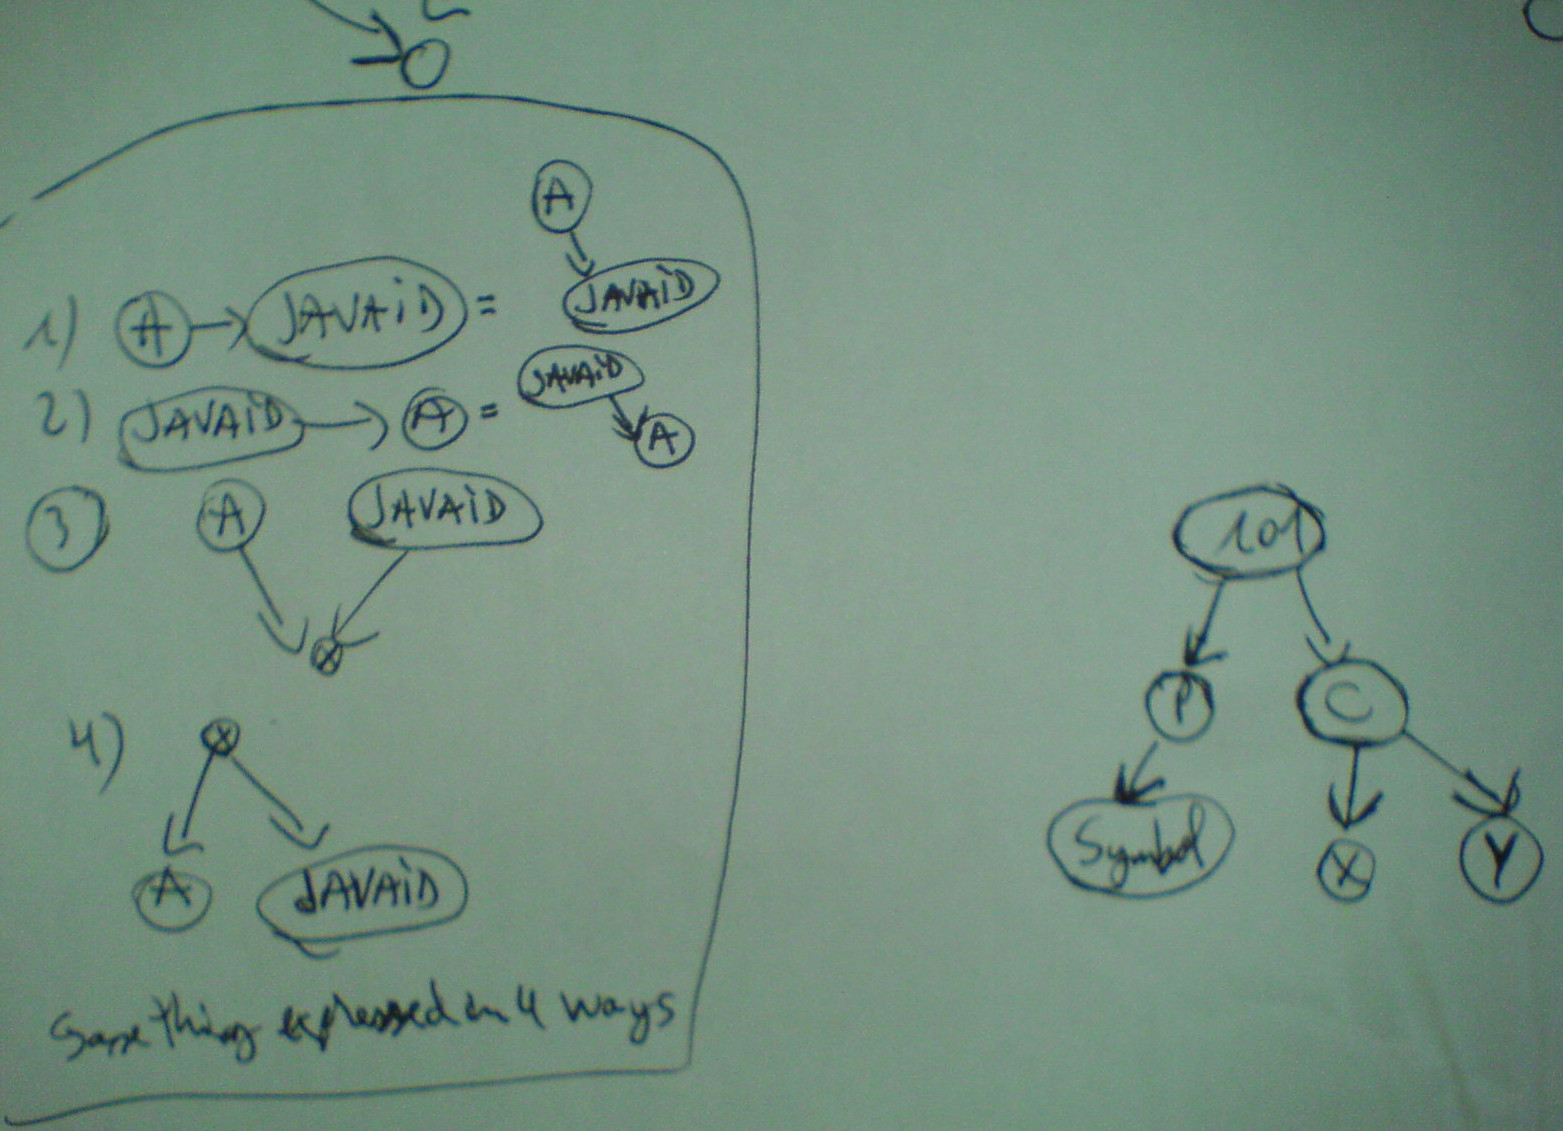 A
1) A → JAVAiD = JAVAiD
2) JAVAiD → A = JAVAiD
A
3 A JAVAiD
X
4) X
A JAVAiD
Same thing expressed in 4 ways
101
P C
Symbol X Y